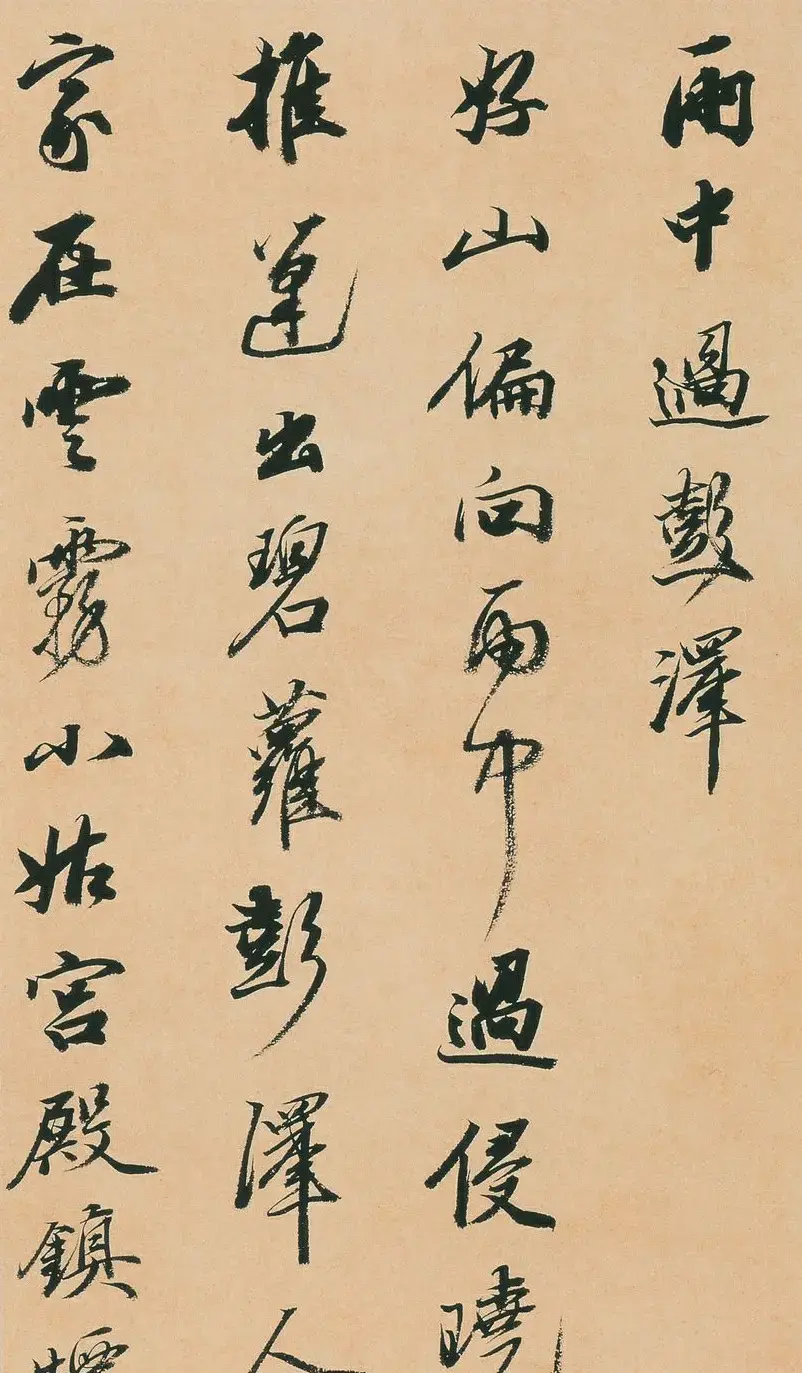 雨中過彭澤
好山偏向雨中過侵曉
推篷出碧蘿彭澤人
家在雲霧小姑宮殿鎮煙